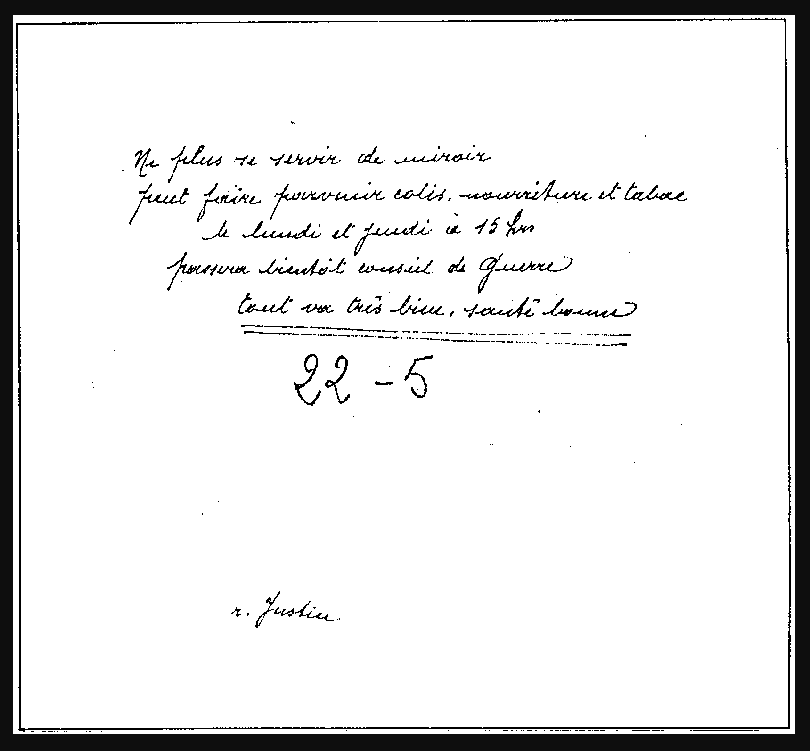 Ne plus se servir de miroir
peut faire parvenir colis, nourriture et tabac
le lundi et jeudi à 15 hrs
passera bientôt conseil de Guerre
tout va très bien, santé bonne
22 - 5
r. Justin